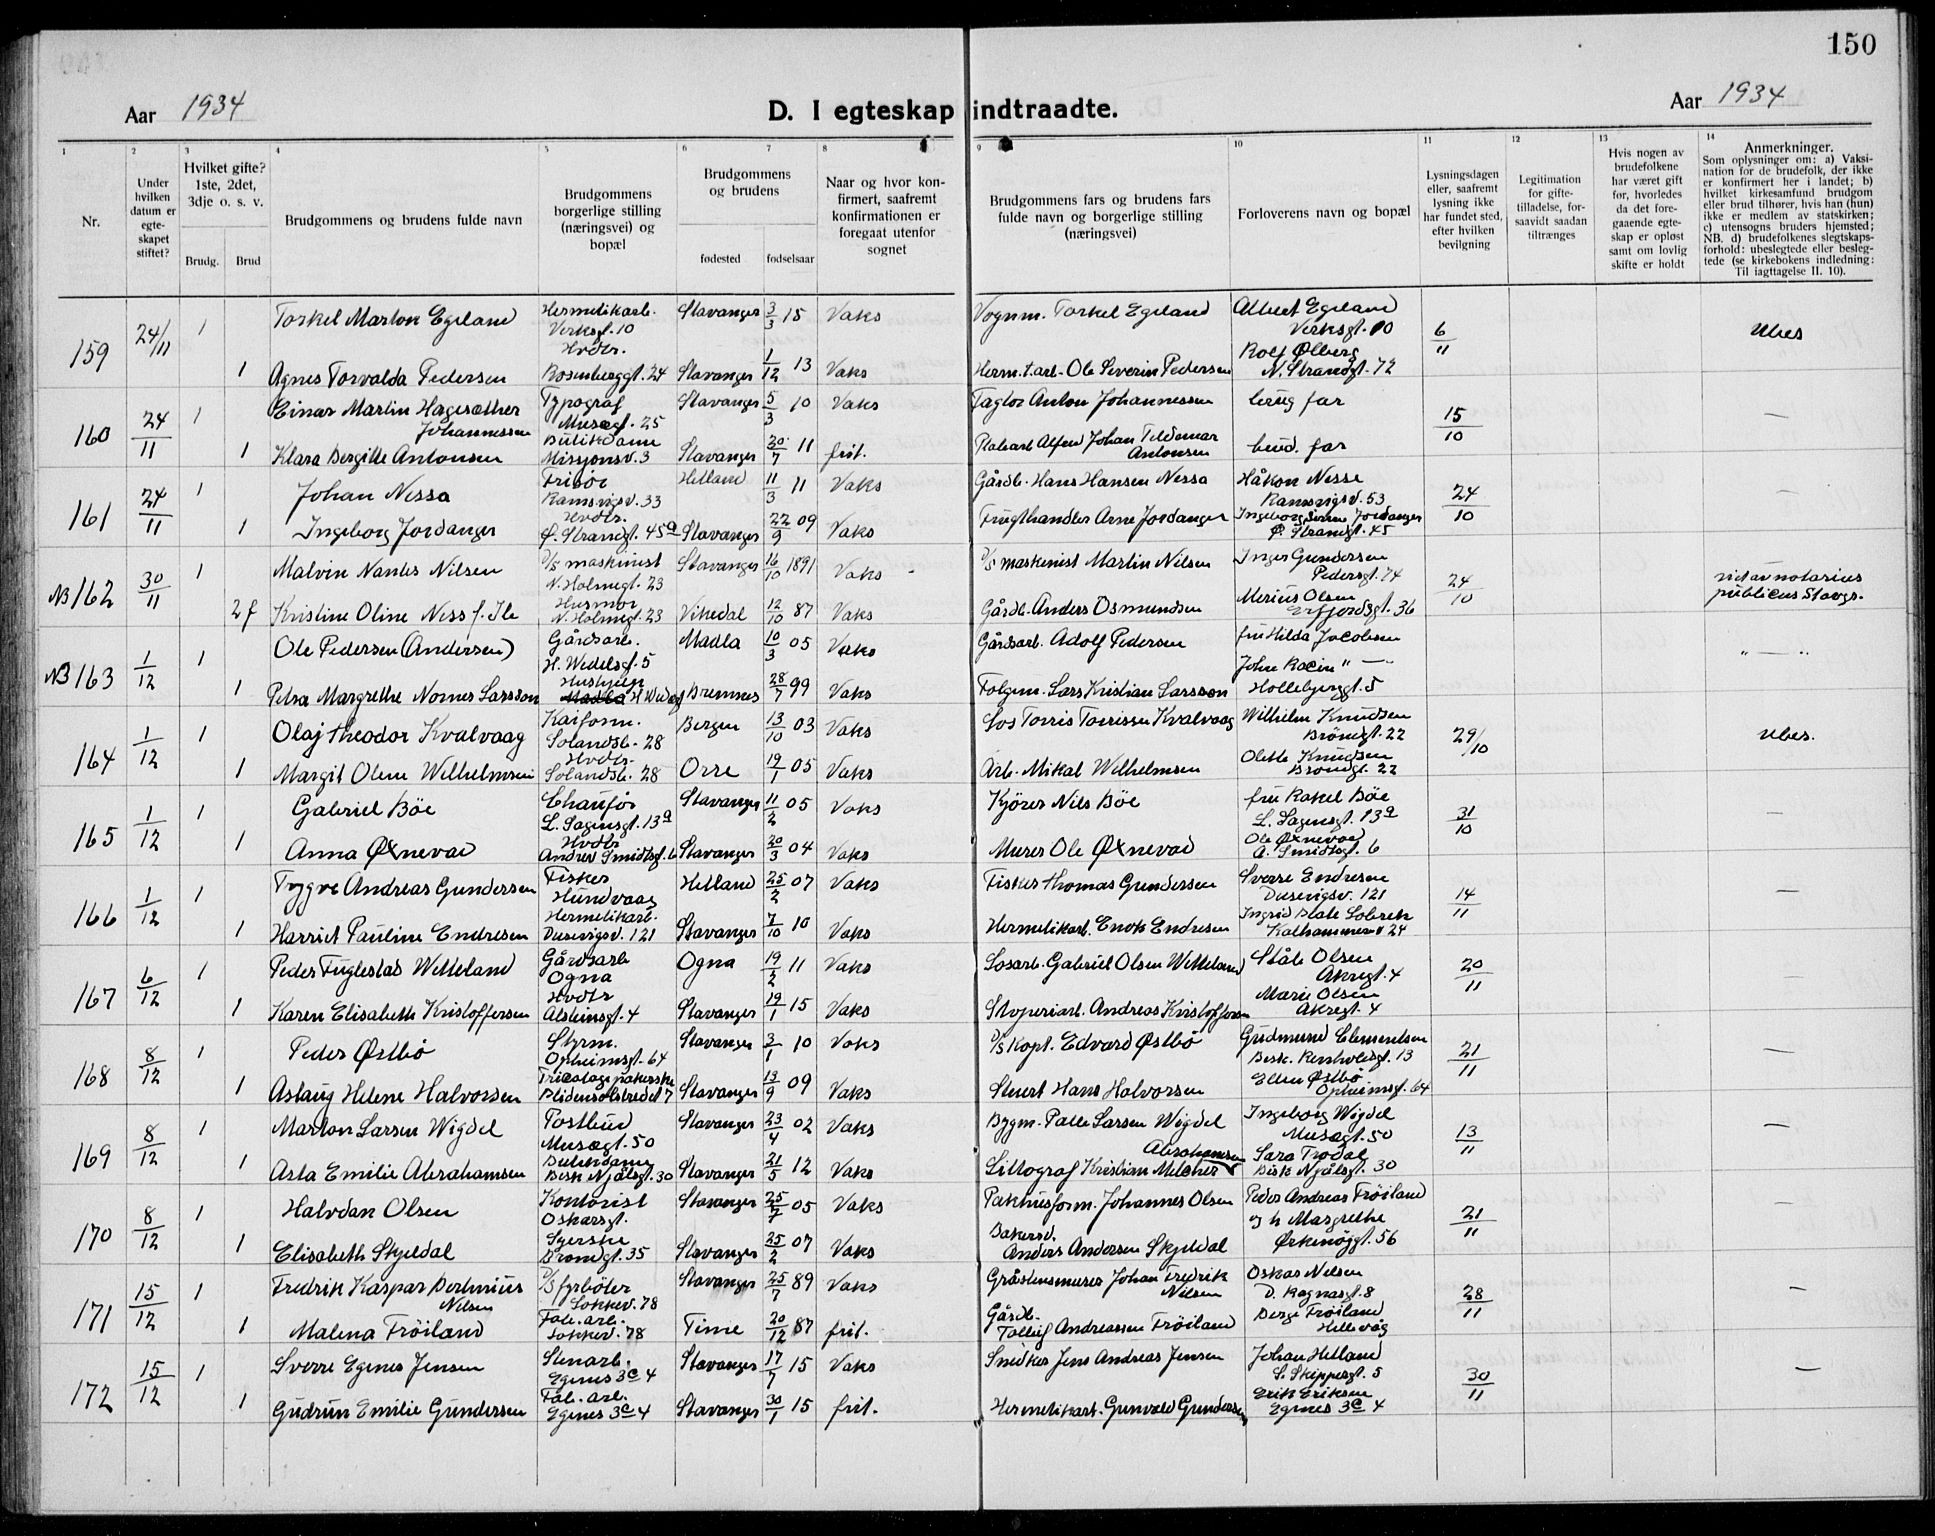 150
Aar 1934
D. I egteskap indtraadte.
Aar 1934
1
2
3
4
5
6
7
8
9
10
11
12
13
14
Nr.
Under hvilken datum er egte-skapet stiftet?
Hvilket gifte? 1ste, 2det, 3dje o. s. v.
Brudg.
Brud
Brudgommens og brudens fulde navn
Brudgommens borgerlige stilling (næringsvei) og bopæl
Brudgommens og brudens
fødested
fødselsaar
Naar og hvor kon-firmert, saafremt konfirmationen er foregaat utenfor sognet
Brudgommens fars og brudens fars fulde navn og borgerlige stilling (næringsvei)
Forloverens navn og bopæl
Lysningsdagen eller, saafremt lysning ikke har fundet sted, efter hvilken bevilgning
Legitimation for gifte-tilladelse, for-saavidt saadan tiltrænges
Hvis nogen av brudefolkene har været gift før, hvorledes da det fore-gaaende egte-skap er opløst samt om lovlig skifte er holdt
Anmerkninger.
Som oplysninger om: a) Vaksi-nation for de brudefolk, der ikke er konfirmert her i landet; b) hvilket kirkesamfund brudgom eller brud tilhører, hvis han (hun) ikke er medlem av statskirken; c) utensogns bruders hjemsted; NB. d) brudefolkenes slegtskaps-forhold: ubeslegtede eller besleg-tede (se kirkebokens indledning: Til iagttagelse II. 10).
159 24/11 1 Torkel Marton Egeland Hermetikarb. Verksgt. 10 Stavanger 3/3 15 Vaks Vognm. Torkel Egeland Albert Egeland Verksgt. 10 6/11 Ubes
1 Agnes Torvalda Pedersen Hvdtr. Rosenberggt. 24 Stavanger 1/12 13 Vaks Herm.t.arb. Ole Severin Pedersen Rolf Ølberg N. Strandgt. 72
160 24/11 1 Einar Martin Hagesæther Johannessen Typograf Musegt. 25 Stavanger 5/3 10 Vaks Faglør Anton Johannessen brug far 15/10 —
1 Klara Bergitte Antonsen Butikdame Misjonsv. 3 Stavanger 20/7 11 frit. Platearb Alfred Johan Antonsen brud. far
161 24/11 1 Johan Nessa Frisør Ramsvigsv. 33 Hetland 11/3 11 Vaks Gårdb. Hans Hansen Nessa Håkon Nesse Ramsvigsv. 53 24/10 —
1 Ingeborg Jordanger Hvdtr. Ø. Strandgt. 45a Stavanger 22/9 09 Vaks Frugthandler Arne Jordanger Ingeborg Jordanger Ø. Strandgt. 45
NB 162 30/11 1 Malvin Nanles Nilsen D/S maskinist N. Holmegt. 23 Stavanger 16/10 1891 Vaks D/S maskinist Martin Nilsen Inger Gundersen Pedersgt. 74 24/10 vid av notarius publicus Stavgr.
2 f Kristine Oline Ness f. Ile Husmor N. Holmegt. 23 Vikedal 12/10 87 Vaks Gårdb. Anders Osmundsen Merius Olsen Erfjordsgt. 36
NB 163 1/12 1 Ole Pedersen (Andersen) Gårdsarb. H. Wedelsgt. 5 Madla 10/3 05 Vaks Gårdsarb. Adolf Pedersen fru Hilda Jacobsen " — "
1 Petra Margrethe Nornes Larsson Bremnes 28/7 99 Vaks Lars Kristian Larsson John Racin " — Hollebjerggt. 5
164 1/12 1 Olaf Theodor Kvalvaag Kaiform. Solandsb. 28 Bergen 13/10 03 Vaks Los Torris Torrissen Kvalvaag Wilhelm Knudsen Bröndgt. 22 29/10 Ubes.
1 Margit Olene Wilhelmsen Hvdtr. Solandsb. 28 Orre 19/1 05 Vaks Arb. Mikal Wilhelmsen Olette Knudsen Bröndgt. 22
165 1/12 1 Gabriel Böe Chaufför L. Sagensgt. 13a Stavanger 11/2 05 Vaks Kjörer Nils Böe fru Rakel Böe L. Sagensgt. 13a 31/10 —
1 Anna Øxnevad Hvdtr Andreas Smidtsgt. 6 Stavanger 20/3 04 Vaks Murer Ole Øxnevad Ole Øxnevad A. Smidtsgt. 6
166 1/12 1 Trygve Andreas Gundersen Fisker Hundvaag Hetland 25/2 07 Vaks Fisker Thomas Gundersen Sverre Endresen Dusevigsv. 121 14/11 —
1 Harriet Pauline Endresen Hermetikarb. Dusevigsv. 121 Stavanger 7/10 10 Vaks Hermetikarb. Enok Endresen Ingrid Kalhammerv 24
167 6/12 1 Peder Fuglestad Wetteland Gårdsarb Ogna Ogna 19/2 11 Vaks Losarb. Gabriel Olsen Wetteland Ståle Olsen Akregt. 4 20/11 —
1 Karen Elisabeth Kristoffersen Hvdtr Alsteinsgt. 4 Stavanger 19/1 15 Vaks Støperiarb. Andreas Kristoffersen Marie Olsen Akregt. 4
168 8/12 1 Peder Østbö Styrm. Opheimsgt. 64 Stavanger 3/1 10 Vaks D/S kapt. Edvard Østbö Gudmund Clementsen Bisk. Reinholdsgt. 13 21/11 —
1 Aslaug Helene Halvorsen Blidensolstredet 7 Stavanger 13/9 09 Vaks Stuert Hans Halvorsen Ellen Østbö Opheimsgt. 64
169 8/12 1 Marton Larsen Wigdel Postbud Musægt. 50 Stavanger 23/4 02 Vaks Bygm. Palle Larsen Wigdel Ingeborg Wigdel Musægt. 50 13/11 —
1 Asta Emilie Abrahamsen Butikdame Bisk Njålsgt. 30 Stavanger 21/5 12 Vaks Littograf Kristian Melcher Abrahamsen Sara Trodal Bisk Njålsgt. 30
170 8/12 1 Halvdan Olsen Kontorist Oskarsgt. Stavanger 25/7 05 Vaks Pakhusform. Johannes Olsen Peder Andreas Fröiland 21/11 —
1 Elisabeth Skjeldal Syerske Bröndgt. 35 Stavanger 25/2 07 Vaks Bakersv. Anders Andersen Skjeldal og h Margrethe Ørkenöygt. 56
171 15/12 1 Fredrik Kaspar Bertinius Nilsen D/S fyrböter Lokkev. 78 Stavanger 25/7 89 Vaks Gråstensmurer Johan Fredrik Nilsen Oskar Nilsen D. Ragnasgt. 8 28/11 —
1 Malena Fröiland Fab. arb. Lokkev. 78 Time 20/12 87 frit. Gårdb. Tollef Andreassen Fröiland Berge Fröiland Hillevåg
172 15/12 1 Sverre Egenes Jensen Stenarb. Egenes 3c 4 Stavanger 17/7 15 Vaks Snedker Jens Andreas Jensen Johan Hetland S. Skippergt. 5 30/11 —
1 Gudrun Emilie Gundersen Fab. arb. Egenes 3c 4 Stavanger 30/1 15 frit. Hermetikarb. Gunvald Gundersen Erik Eriksen Egenes 3c 4